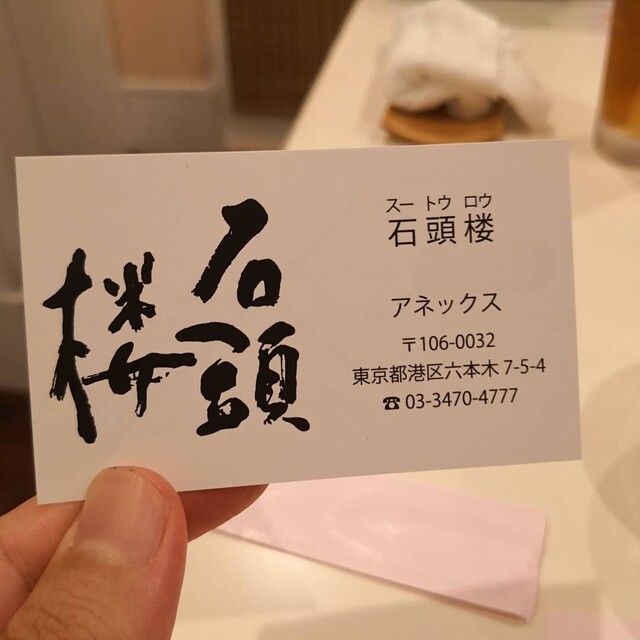 石頭
楼
スー トウ ロウ
石頭楼
アネックス
〒106-0032
東京都港区六本木 7-5-4
☎ 03-3470-4777